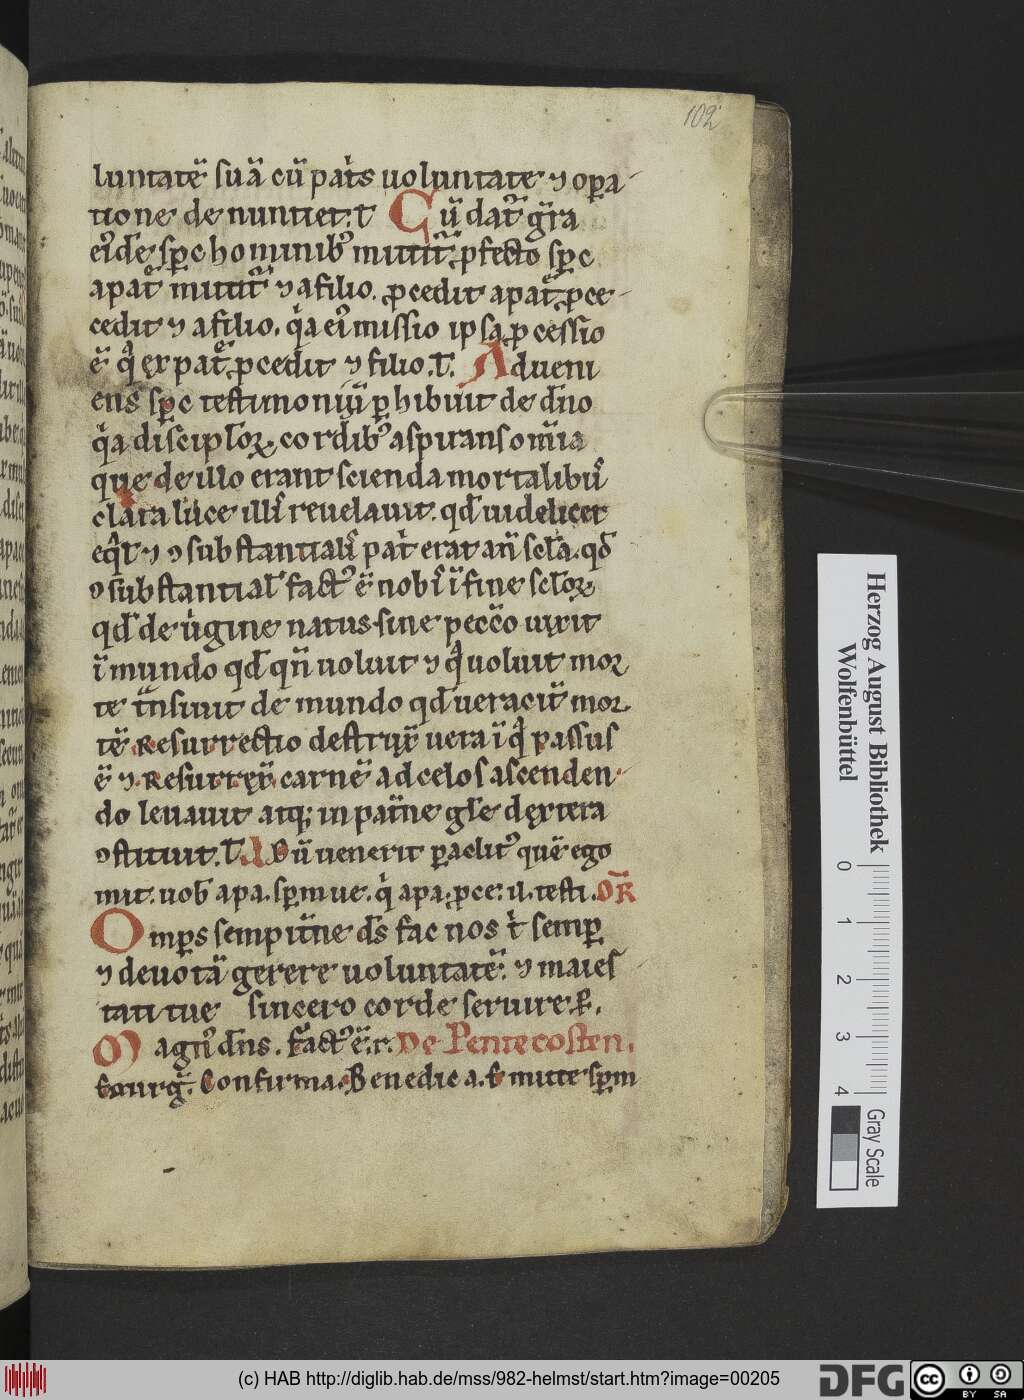 102
luntatē suā cū pat's uoluntate ⁊ opa-
tione denuntiet. t Cū dat' gr̄a
ei'dē sp̄c hominib' mittit'. pfecto sp̄c
a pat mittit' ⁊ a filio. pcedit a pat pce-
cedit ⁊ a filio. q'a ei' missio ipsa pcessio
ē q' ex pat pcedit ⁊ filio. t. Adueni
ens sp̄c testimoniū phibuit de dn̄o
q'a disciplor cordib' aspirans om̄ia
que de illo erant scienda mortalib'
clara luce illi' reuelauit. qd uidelicet
eq̄l' ⁊ ꝯsubstantiali' pat' erat an̄ scl'a. qd
ꝯsubstantial' fact' ē nob' ī fine sclor
qd de u'gine natus sine pecc̄o uixit
ī mundo qd qn̄ uoluit ⁊ q' uoluit mor
te tn̄siuit de mundo qd ueracit' mor
tē Resurrectio destrux' uera ī q' passus
ē ⁊ Resurrex' carnē ad celos ascenden-
do leuauit atq; in pat'ne gl'e dextera
ꝯstituit. t. A Dū uenerit paclit' quē ego
mit. uob apa. spm ue. q' apa. pce. il. testi. OR
Omps sempit'ne ds fac nos t' semp
⁊ deuotā gerere uoluntatē. ⁊ maies
tati tue sincero corde seruire. P.
Magn' dn̄s. fact' ē. r. De Pentecosten.
Confirma. Benedic a. E mitte spm
Herzog August Bibliothek
Wolfenbüttel
0 1 2 3 4
Gray Scale
(c) HAB http://diglib.hab.de/mss/982-helmst/start.htm?image=00205
DFG
cc
BY SA